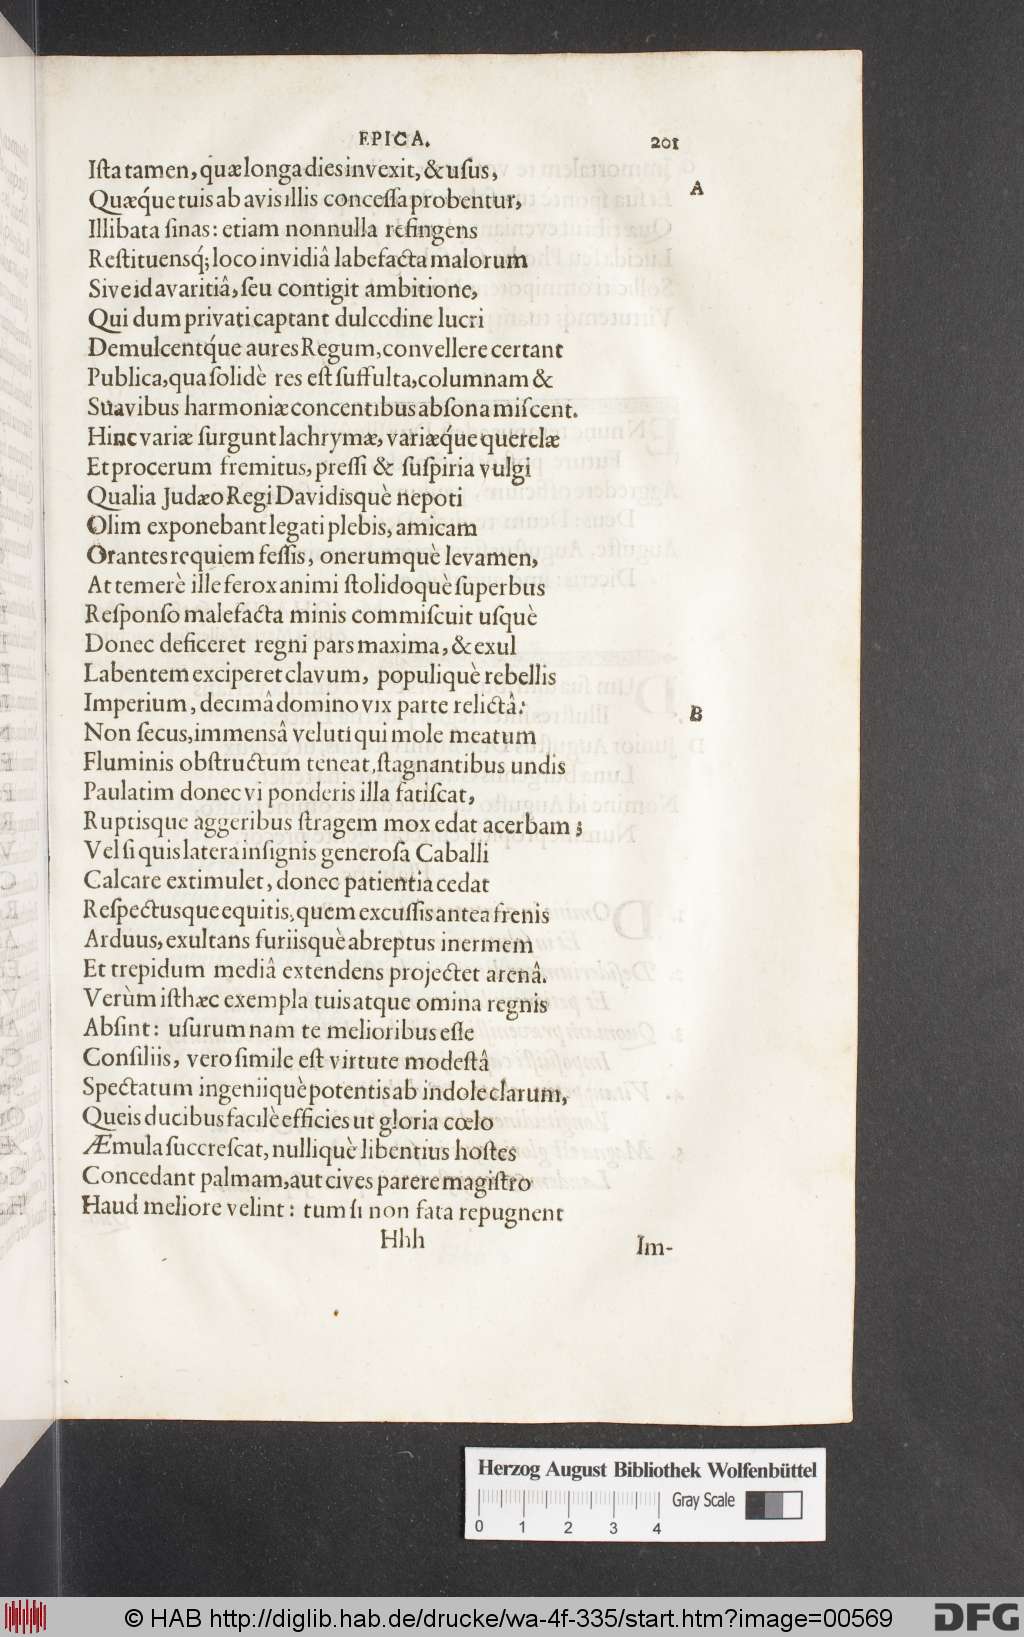 EPICA. 201
Iſta tamen, quæ longa dies invexit, & uſus,
A
Quæq́ue tuis ab avis illis conceſſa probentur,
Illibata ſinas: etiam nonnulla refingens
Reſtituensq́; loco invidiâ labefacta malorum
Sive id avaritiâ, ſeu contigit ambitione,
Qui dum privati captant dulcedine lucri
Demulcentq́ue aures Regum, convellere certant
Publica, qua ſolidè res eſt ſuffulta, columnam &
Suavibus harmoniæ concentibus abſona miſcent.
Hinc variæ ſurgunt lachrymæ, variæq́ue querelæ
Et procerum fremitus, preſſi & ſuſpiria vulgi
Qualia Judæo Regi Davidisquè nepoti
Olim exponebant legati plebis, amicam
Orantes requiem feſſis, onerumquè levamen,
At temerè ille ferox animi ſtolidoquè ſuperbus
Reſponſo malefacta minis commiſcuit uſquè
Donec deficeret regni pars maxima, & exul
Labentem exciperet clavum, populiquè rebellis
Imperium, decimâ domino vix parte relictâ:
B
Non ſecus, immensâ veluti qui mole meatum
Fluminis obſtructum teneat, ſtagnantibus undis
Paulatim donec vi ponderis illa fatiſcat,
Ruptisque aggeribus ſtragem mox edat acerbam;
Vel ſi quis latera inſignis generoſa Caballi
Calcare extimulet, donec patientia cedat
Reſpectusque equitis, quem excuſſis antea frenis
Arduus, exultans furiisquè abreptus inermem
Et trepidum mediâ extendens projectet arenâ.
Verùm iſthæc exempla tuis atque omina regnis
Abſint: uſurum nam te melioribus eſſe
Conſiliis, vero ſimile eſt virtute modeſtâ
Spectatum ingeniiquè potentis ab indole clarum,
Queis ducibus facilè efficies ut gloria cœlo
Æmula ſuccreſcat, nulliquè libentius hoſtes
Concedant palmam, aut cives parere magiſtro
Haud meliore velint: tum ſi non fata repugnent
Hhh Im-
Herzog August Bibliothek Wolfenbüttel
Gray Scale
0 1 2 3 4
© HAB http://diglib.hab.de/drucke/wa-4f-335/start.htm?image=00569 DFG